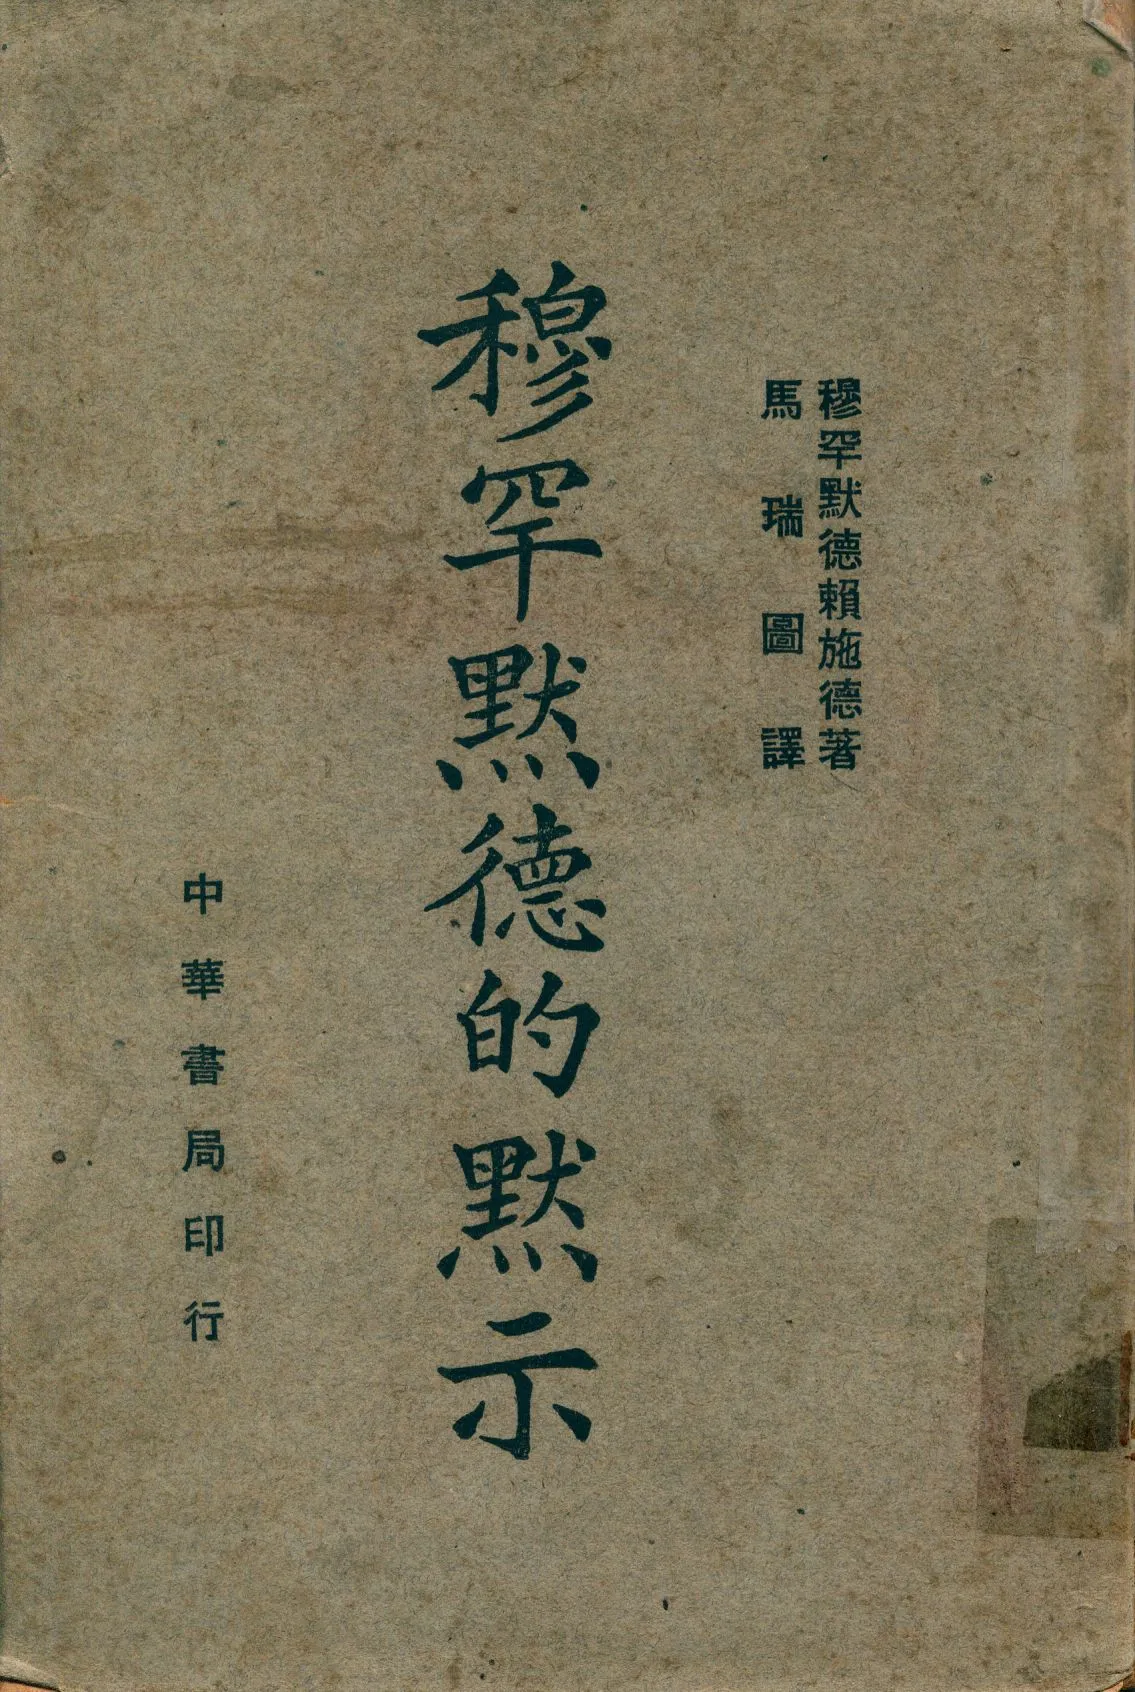 穆罕默德賴施德著
馬瑞圖譯
穆罕默德的默示
中華書局印行